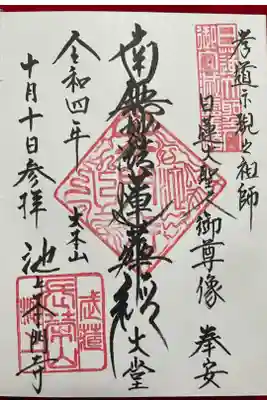 孝道示現之祖師
日蓮大聖人御尊像 奉安
南無妙法蓮華経 大堂
令和四年 大本山
十月十日参拝 池上本門寺
武蔵
長栄山
池上